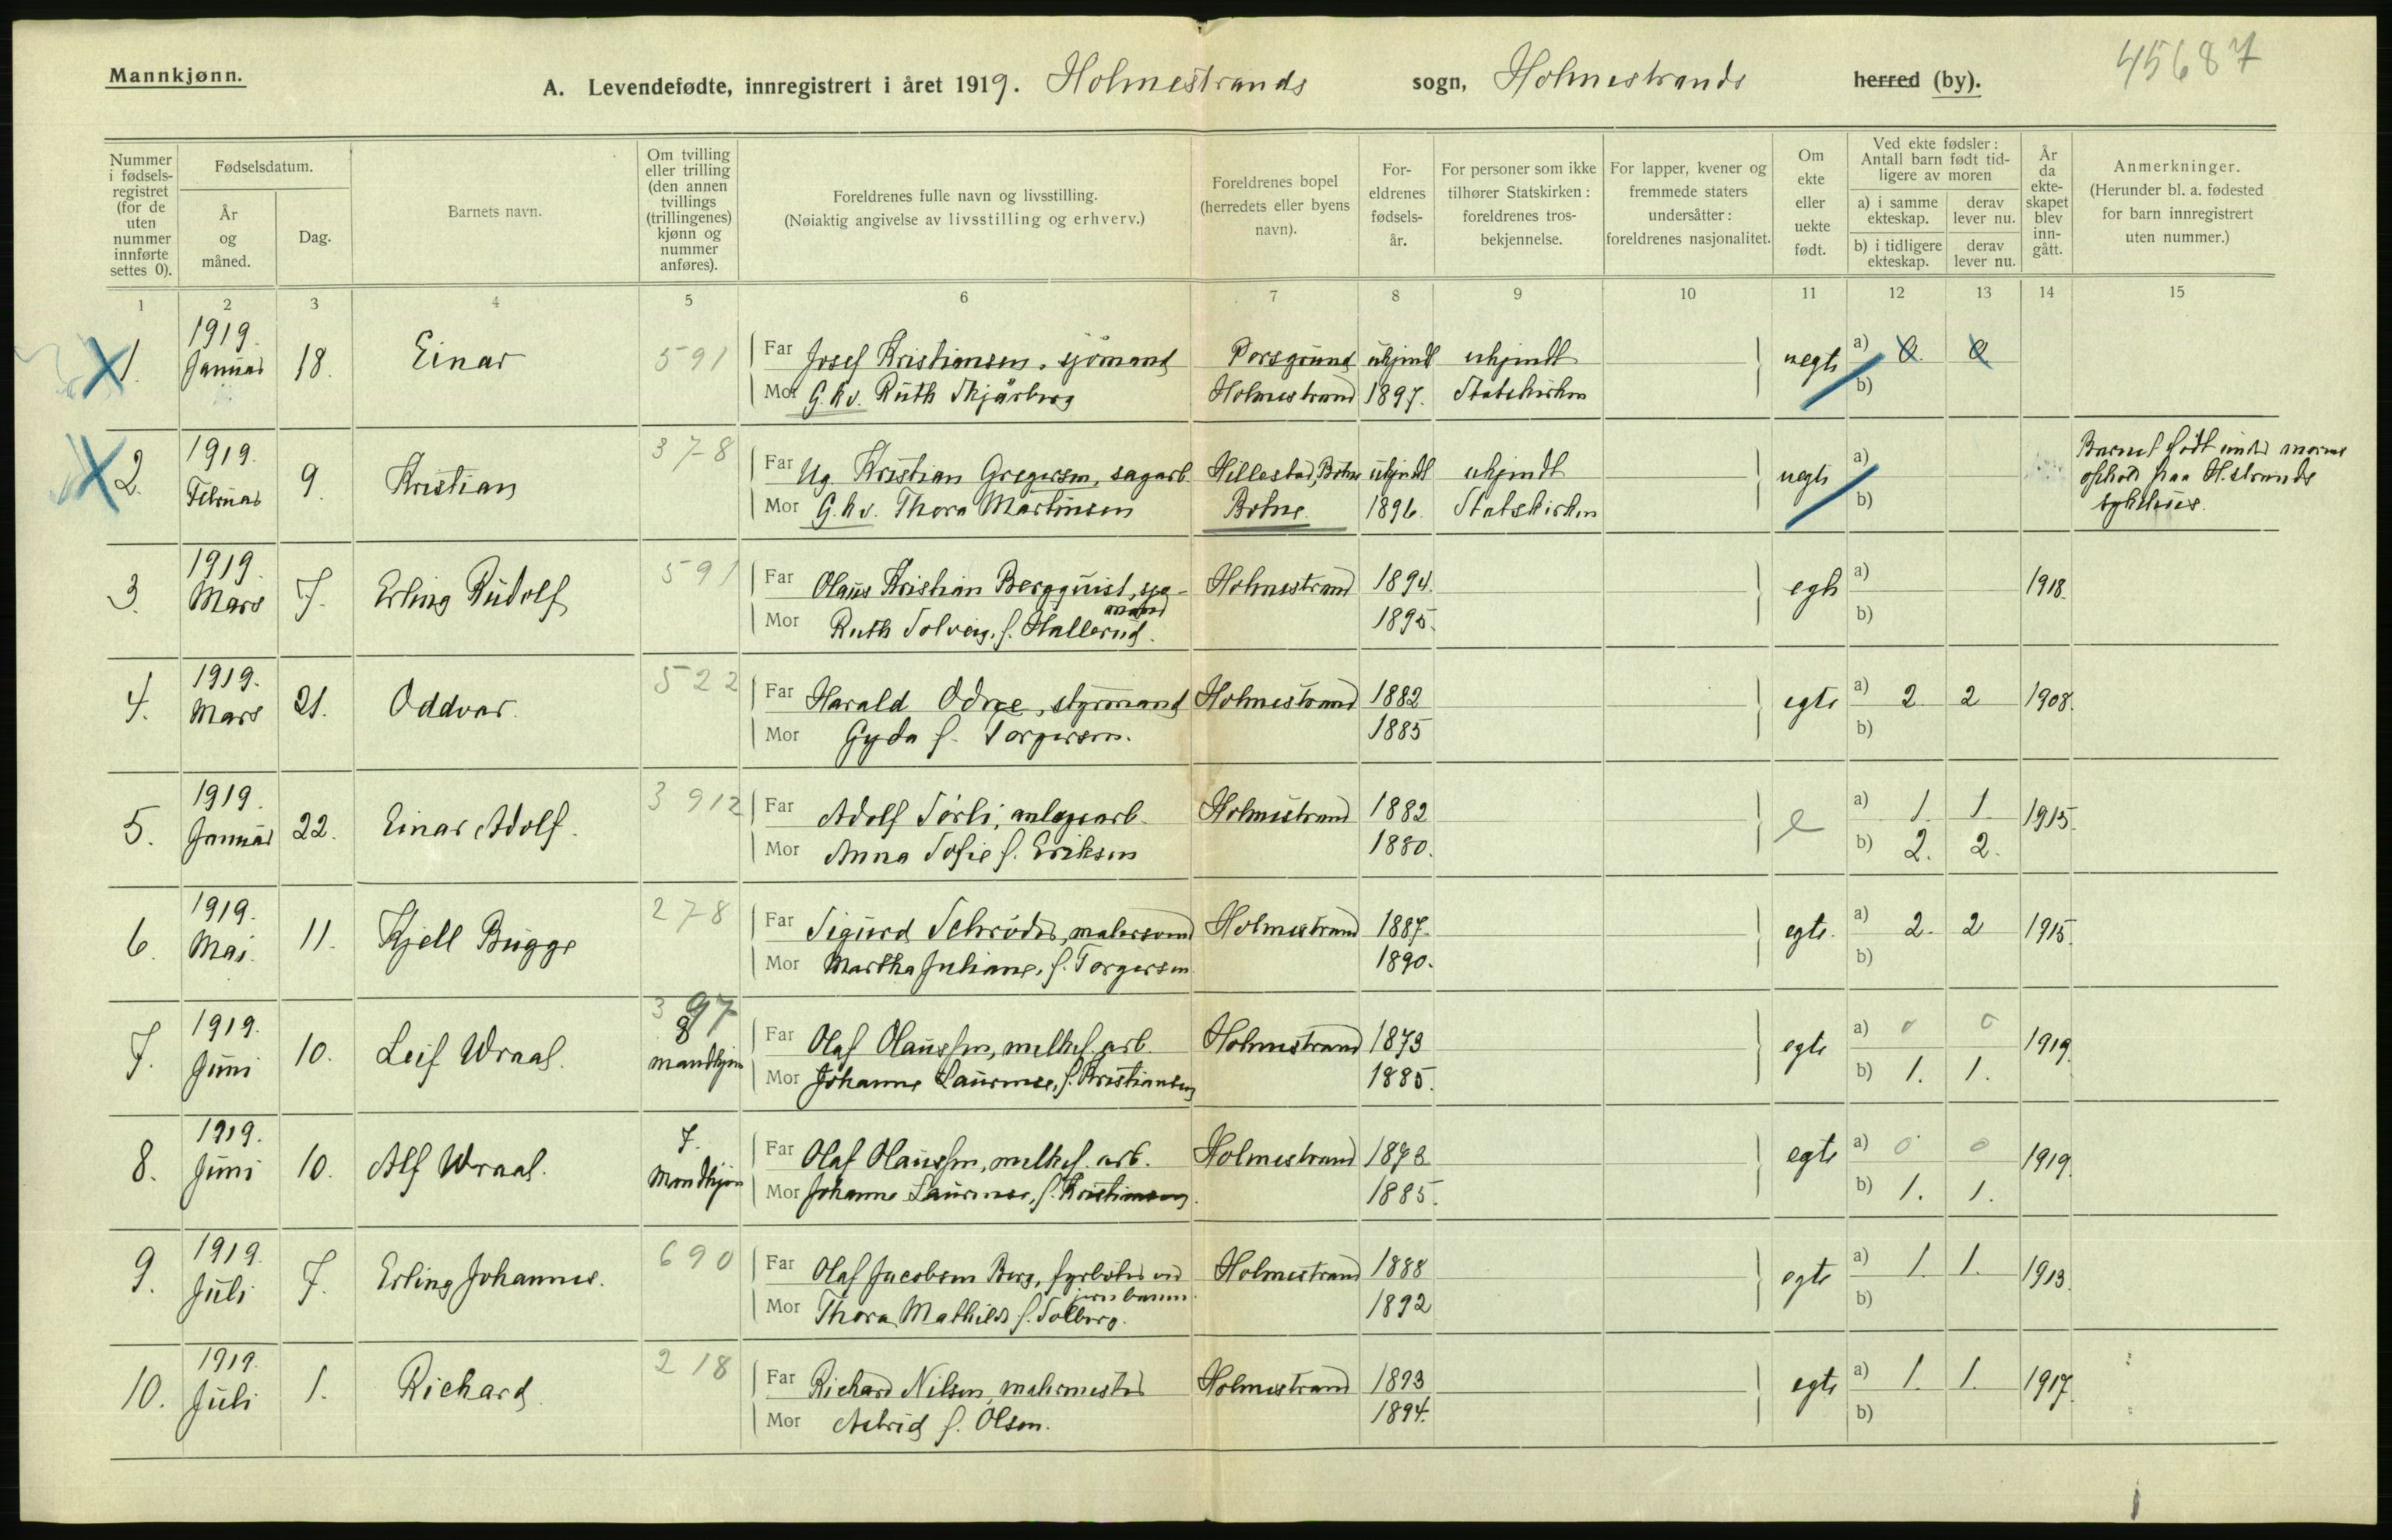 Mannkjønn.
A. Levendefødte, innregistrert i året 1919. Holmestrands sogn, Holmestrands herred (by).
45687
Nummer i fødsels-registret (for de uten nummer innførte settes 0).
Fødselsdatum.
År og måned.
Dag.
Barnets navn.
Om tvilling eller trilling (den annen tvillings (trillingenes) kjønn og nummer anføres).
Foreldrenes fulle navn og livsstilling.
(Nøiaktig angivelse av livsstilling og erhverv.)
Foreldrenes bopel (herredets eller byens navn).
For-eldrenes fødsels-år.
For personer som ikke tilhører Statskirken: foreldrenes tros-bekjennelse.
For lapper, kvener og fremmede staters undersåtter: foreldrenes nasjonalitet.
Om ekte eller uekte født.
Ved ekte fødsler: Antall barn født tid-ligere av moren
a) i samme ekteskap.
derav lever nu.
b) i tidligere ekteskap.
derav lever nu.
År da ekte-skapet blev inn-gått.
Anmerkninger.
(Herunder bl. a. fødested for barn innregistrert uten nummer.)
1 2 3 4 5 6 7 8 9 10 11 12 13 14 15
1. 1919. Januar 18. Einar 591
Far Josef Kristiansen, sjömand Porsgrund ukjendt ukjendt uegte a) 0. 0
Mor G. kv. Ruth Skjärberg Holmestrand 1897. Statskirken b)
2. 1919. Februar 9. Kristian 378
Far Ug. Kristian Gregersen, sagarb. Hillestad, Botne ukjendt ukjendt uegte a)
Mor G. kv. Thora Martinsen Botne 1896. Statskirken b)
Barnet födt under morens
ophold paa H.strands
sykehus.
3. 1919. Mars 7. Erling Rudolf 591
Far Olaus Kristian Bergquist, sjø-mand Holmestrand 1894. egte a) 1918.
Mor Ruth Solveig, f. Hallerud. 1895. b)
4. 1919. Mars 21. Oddvar. 522
Far Harald Odne, styrmand Holmestrand 1882 egte a) 2 2 1908.
Mor Gyda f. Torgersen. 1885 b)
5. 1919. Januar 22. Einar Adolf. 3912
Far Adolf Sørli, anlegsarb. Holmestrand 1882 e a) 1. 1. 1915.
Mor Anna Sofie f. Eriksen 1880. b) 2. 2.
6. 1919. Mai. 11. Kjell Bugge 278
Far Sigurd Schrøder, malersvend Holmestrand 1887. egte. a) 2. 2 1915.
Mor Martha Juliane, f. Torgersen 1890. b)
7. 1919. Juni 10. Leif Wraal. 397 8 mandkjön
Far Olaf Olaussen, melkef. arb. Holmestrand 1873 egte a) 0 0 1919.
Mor Johanne Laurense, f. Kristiansen 1885. b) 1. 1.
8. 1919. Juni 10. Alf Wraal. 7. Mandkjön
Far Olaf Olaussen, melkef. arb. Holmestrand 1873 egte a) 0 0 1919.
Mor Johanne Laurense, f. Kristiansen. 1885. b) 1. 1.
9. 1919. Juli 7. Erling Johannes. 690
Far Olaf Jacobsen Berg, fyrbøter ved jernbanen. Holmestrand 1888 egte a) 1. 1. 1913.
Mor Thora Mathilde f. Solberg. 1892 b)
10. 1919. Juli 1. Richard 218
Far Richard Nilsen, malermester Holmestrand 1893 egte a) 1. 1. 1917.
Mor Astrid f. Olsen. 1894. b)